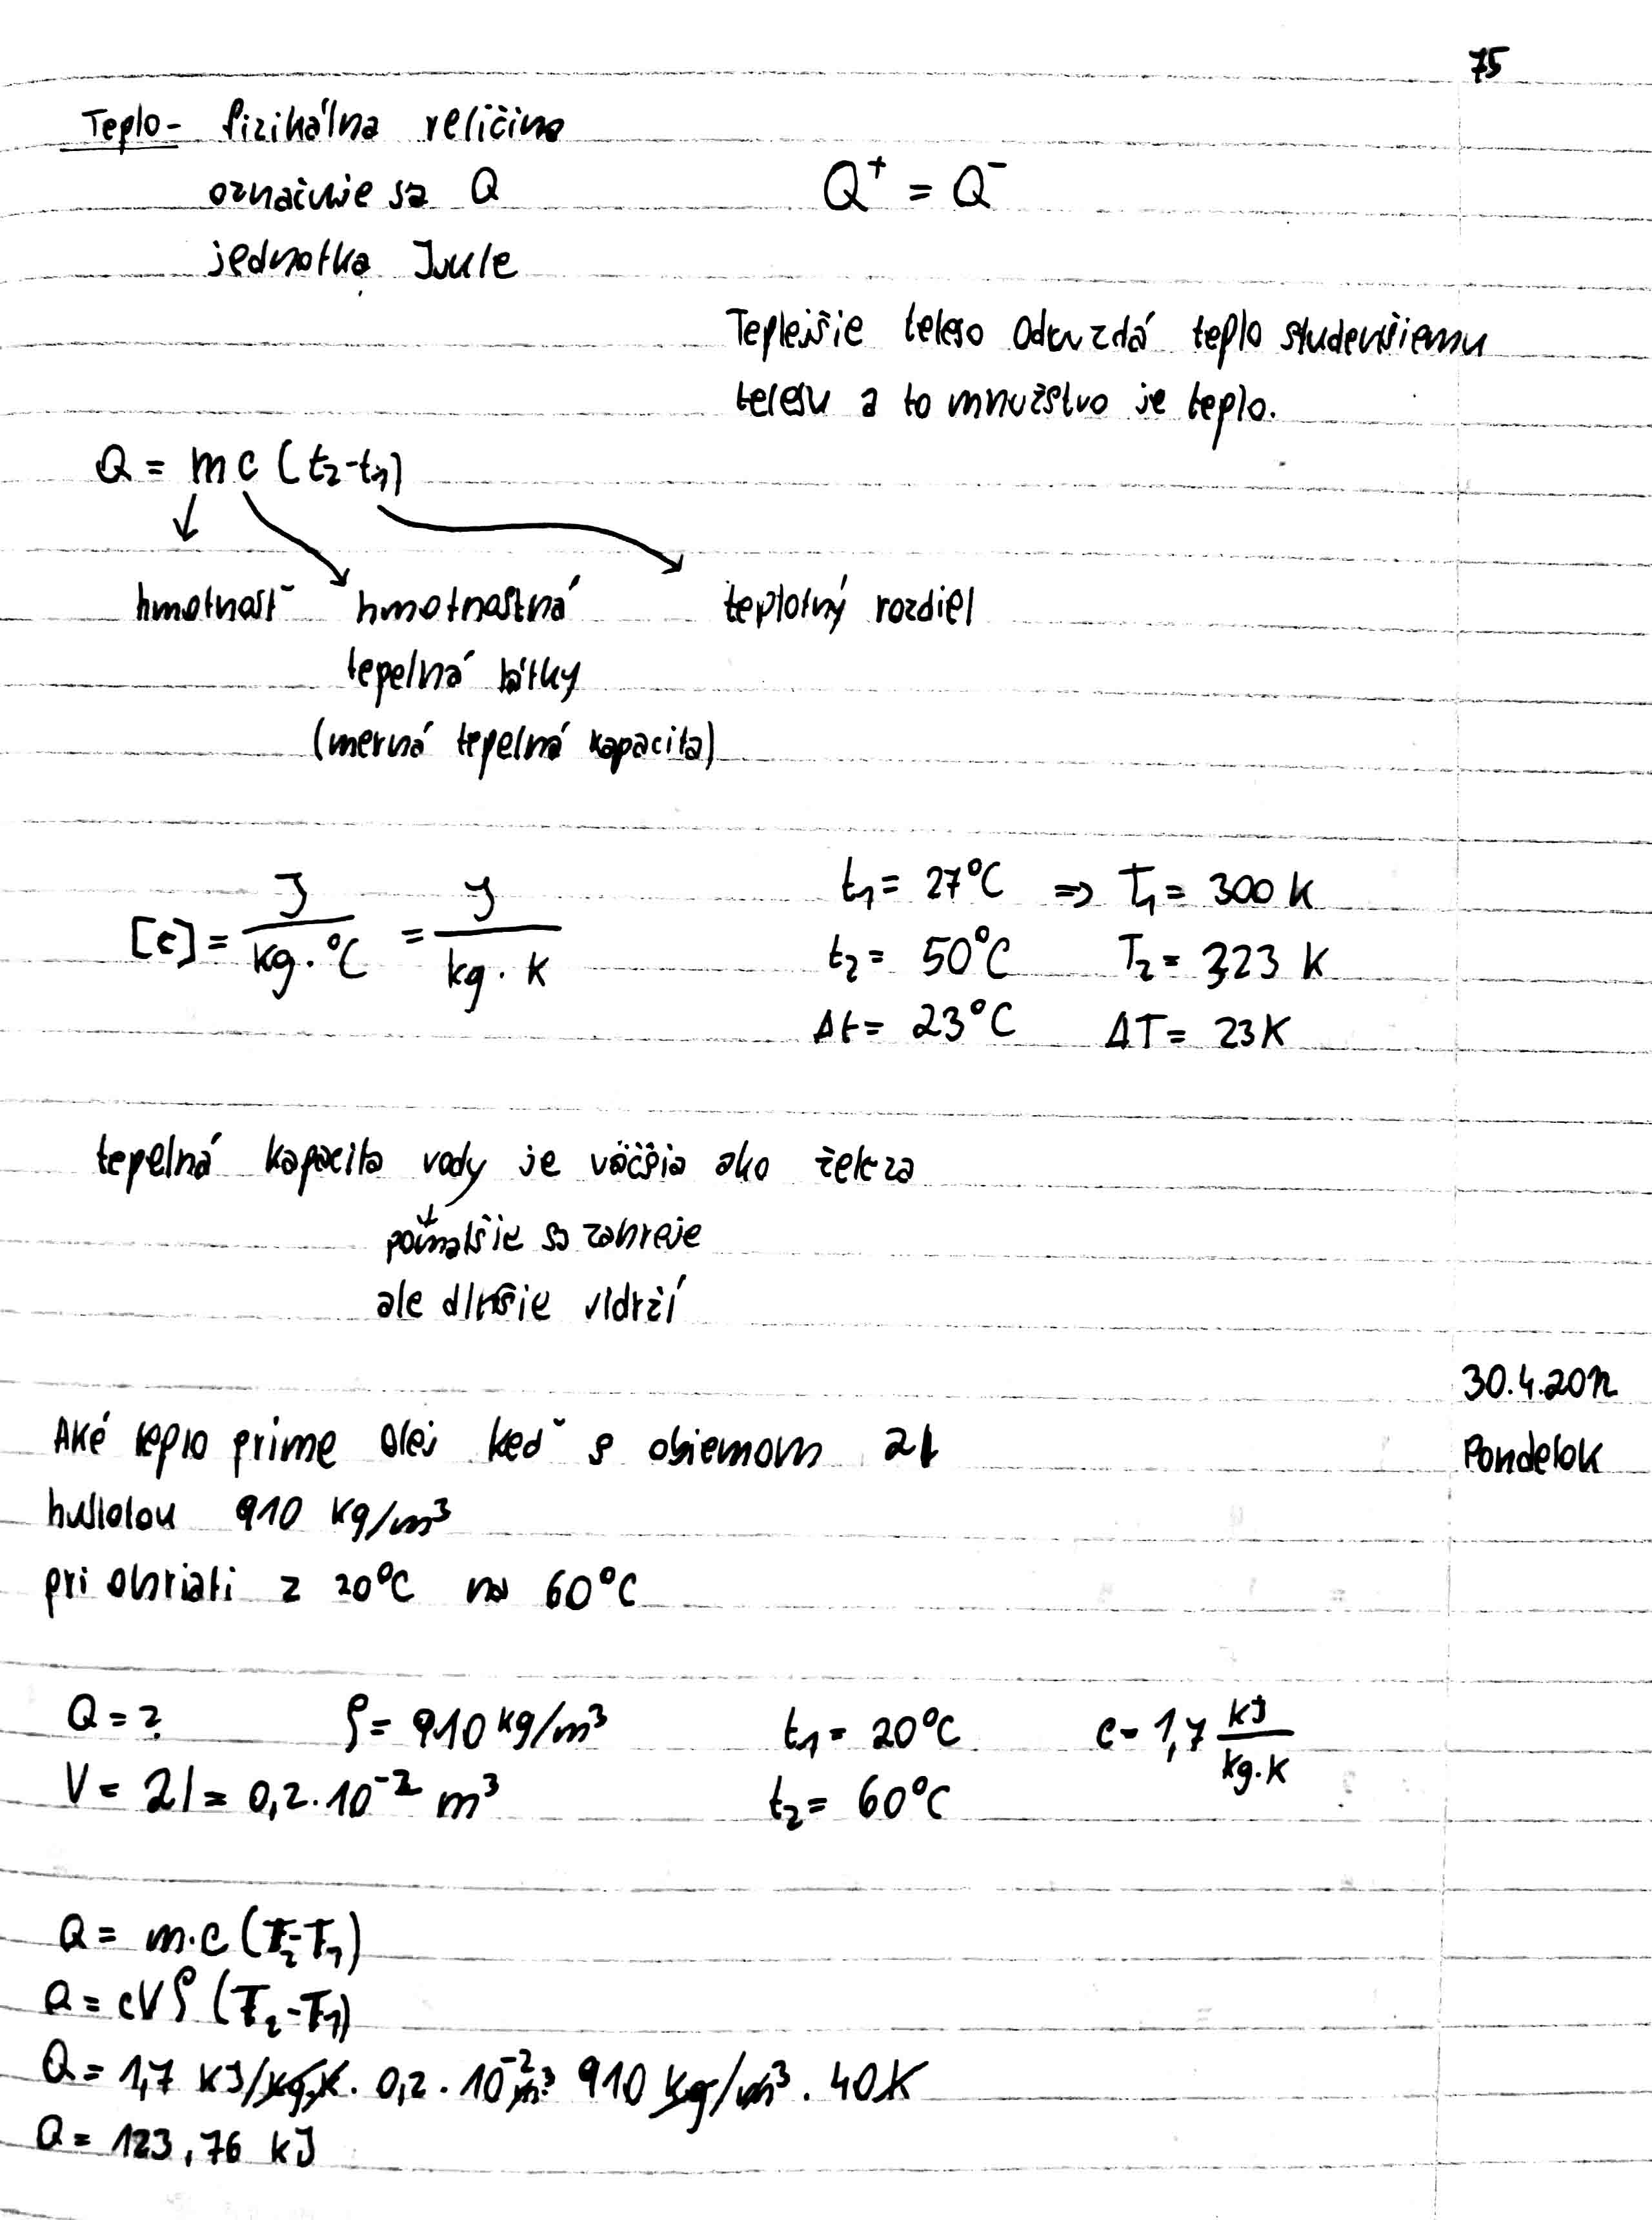 75
Teplo - fizikálna veličina
označuje sa Q
Q⁺ = Q⁻
jednotka Joule
Teplejšie teleso odovzdá teplo studenšiemu
telesu a to množstvo je teplo.
Q = mc (t₂-t₁)
hmotnosť hmotnostná teplotný rozdiel
tepelná látky
(merná tepelná kapacita)
[c] = J/kg·°C = J/kg·K
t₁ = 27°C => T₁ = 300 K
t₂ = 50°C T₂ = 323 K
Δt = 23°C ΔT = 23K
tepelná kapacita vody je väčšia ako železa
pomalšie sa zahreje
ale dlhšie vidrží
30.4.2012
Pondelok
Aké teplo prime olej keď s objemom 2l
hustotou 910 kg/m³
pri ohriati z 20°C na 60°C
Q = ? ρ = 910 kg/m³ t₁ = 20°C c = 1,7 kJ/kg.K
V = 2l = 0,2.10⁻² m³ t₂ = 60°C
Q = m.c (T₂-T₁)
Q = cVρ (T₂-T₁)
Q = 1,7 kJ/kg.K . 0,2 . 10⁻² m³ . 910 kg/m³ . 40K
Q = 123,76 kJ